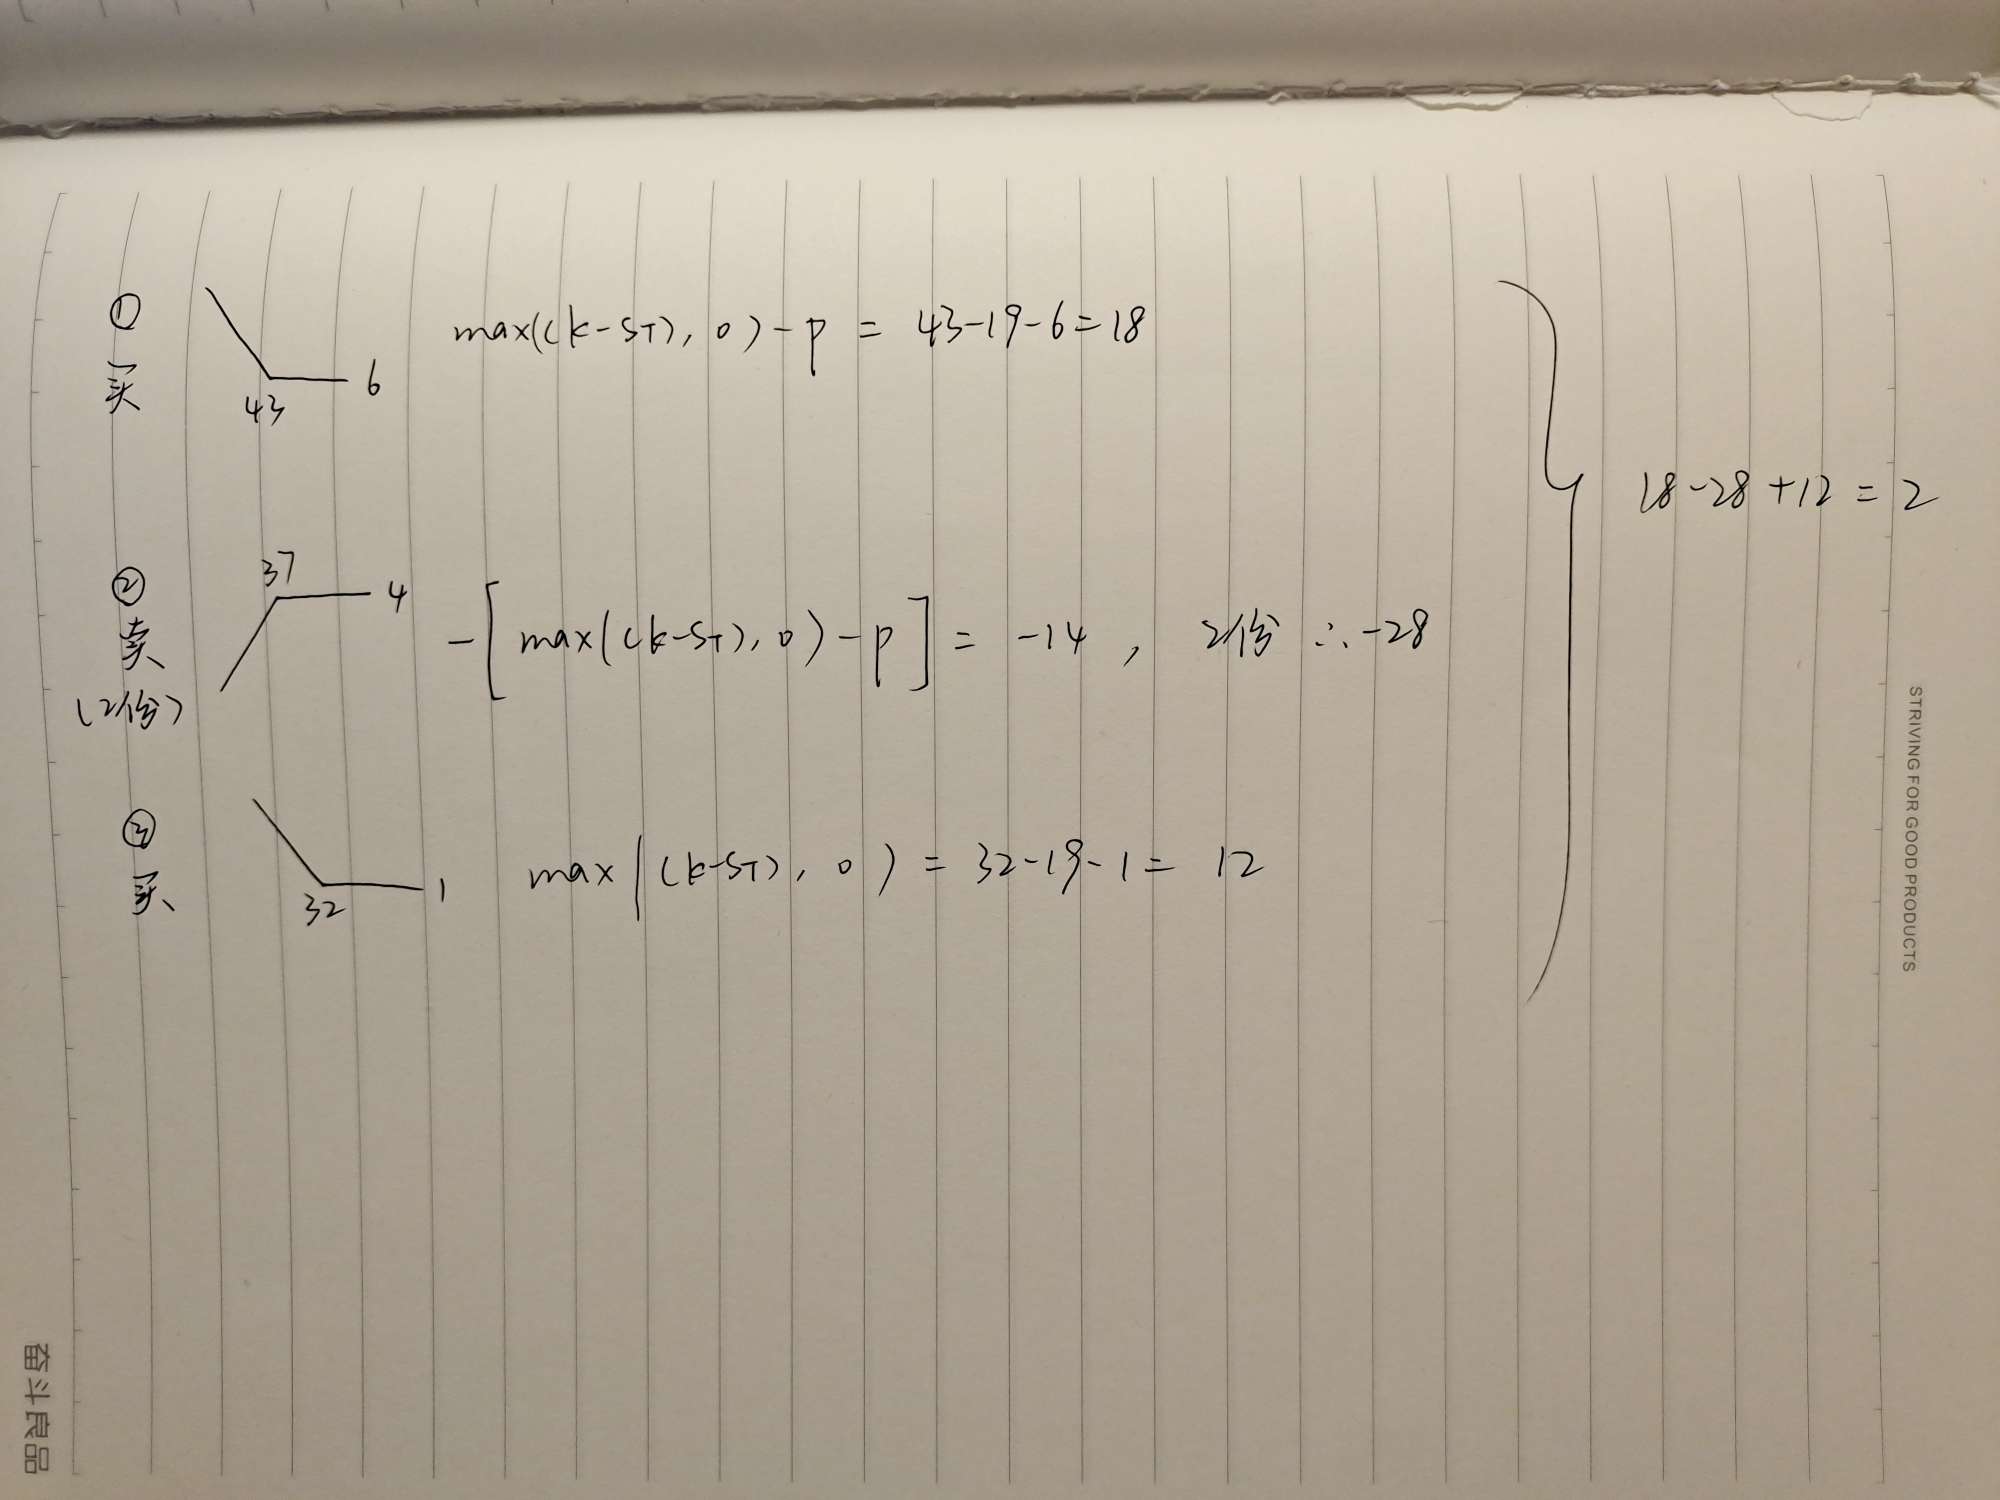 ① 买 43 6 max((k-ST), 0)-p = 43-19-6=18
② 卖 (2份) 37 4 -[max((k-ST), 0)-p] = -14, 2份 ∴-28
③ 买 32 1 max((k-ST), 0) = 32-19-1= 12
18-28+12=2
STRIVING FOR GOOD PRODUCTS
奋斗良品